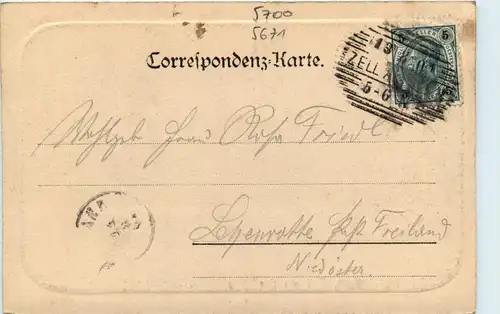 5700
5671
Correspondenz-Karte.
5
ZELL A
5-6
Wohlgeb Frau Rosa Friedl
Lehenrotte Post Freiland
N. Oester.